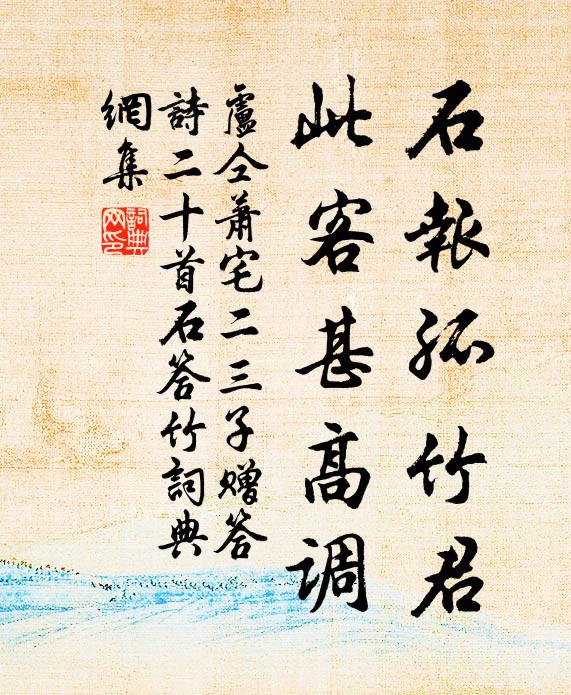 石報孤竹君
此客甚高调
盧仝萧宅二三子贈答
詩二十首石答竹詞典
網集
詞典網印